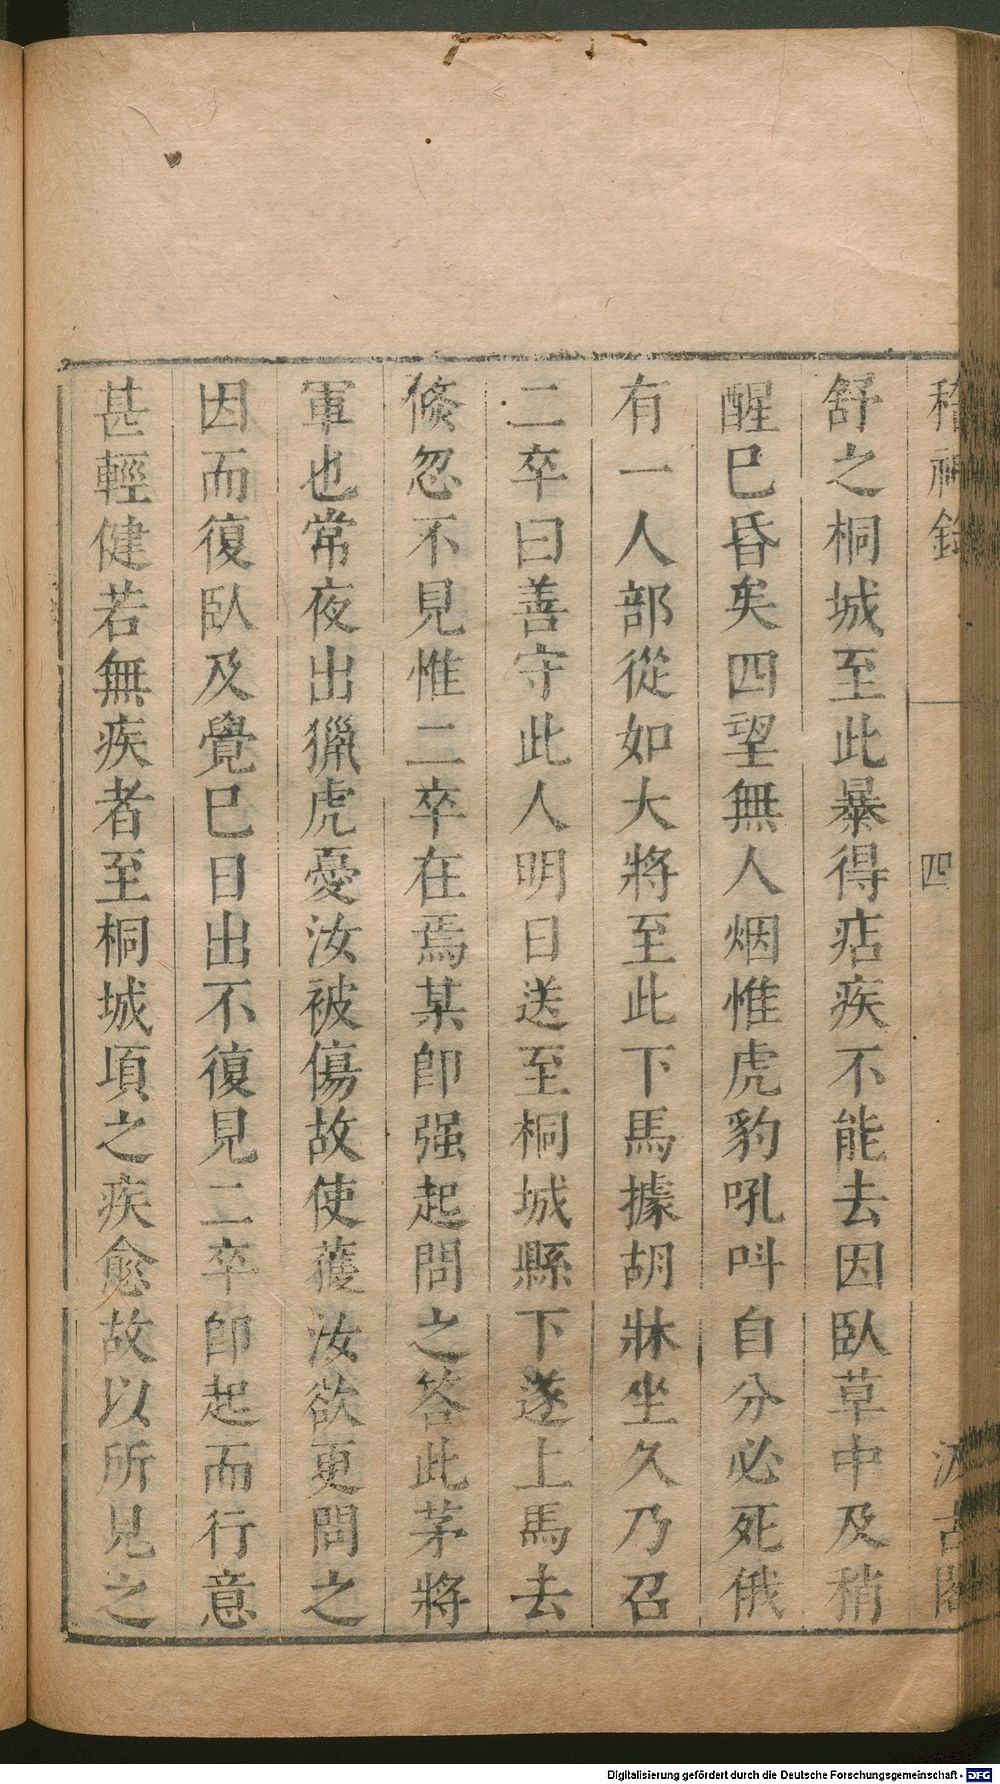 稽神錄 四 汲古閣
舒之桐城至此暴得痁疾不能去因臥草中及稍
醒巳昏矣四望無人烟惟虎豹吼呌自分必死俄
有一人部從如大將至此下馬據胡牀坐久乃召
二卒曰善守此人明日送至桐城縣下遂上馬去
倐忽不見惟二卒在焉某卽强起問之答此茅將
軍也常夜出獵虎憂汝被傷故使䕶汝欲更問之
因而復臥及覺巳日出不復見二卒卽起而行意
甚輕健若無疾者至桐城項之疾愈故以所見之
Digitalisierung gefördert durch die Deutsche Forschungsgemeinschaft - DFG